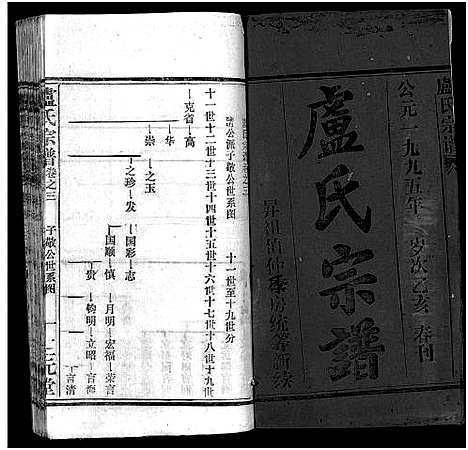 盧氏宗譜
公元一九九五年 歲次乙亥 春刊
盧氏宗譜
十一世至十九世分
公派子敬公世系图
十一世十二世十三世十四世十五世十六世十七世十八世十九世
克省—高
华
崇—之玉
之珍—发
国彩—志
国顺—慎—月明—宏福—荣言
贵—钧明—立昭—言海
言清
盧氏宗譜卷之三 子敬公世系图 一